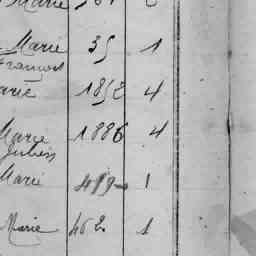 Marie
Marie 35 1
François
arie 1852 4
Marie 1886 4
Marie 1
Marie 462 1